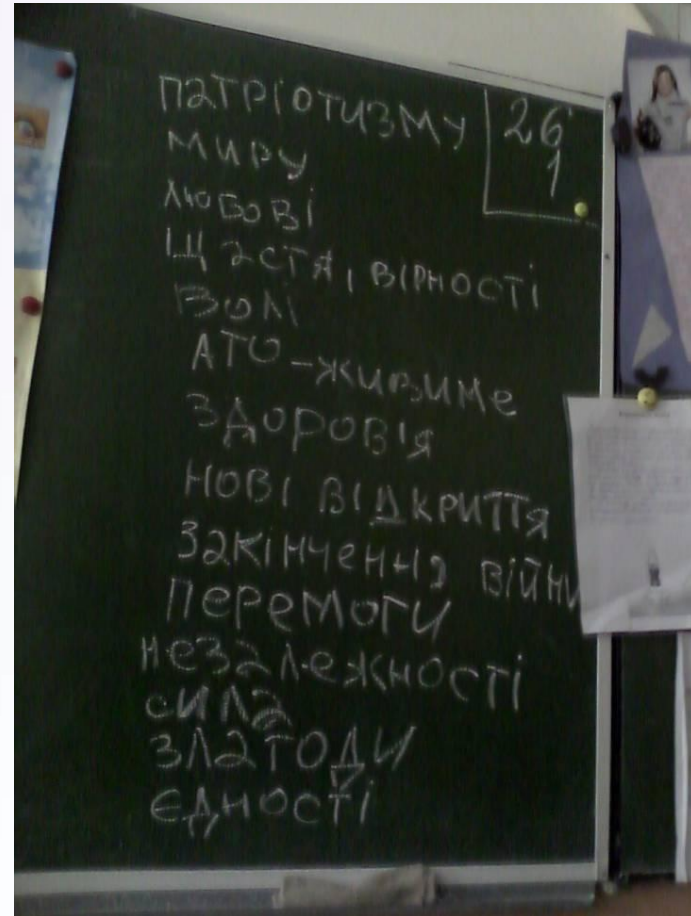 патріотизму
миру
любові
щастя, вірності
волі
АТО – живиме
здоров'я
нові відкриття
закінчення війни
перемоги
незалежності
сила
злагоди
єдності
26
1